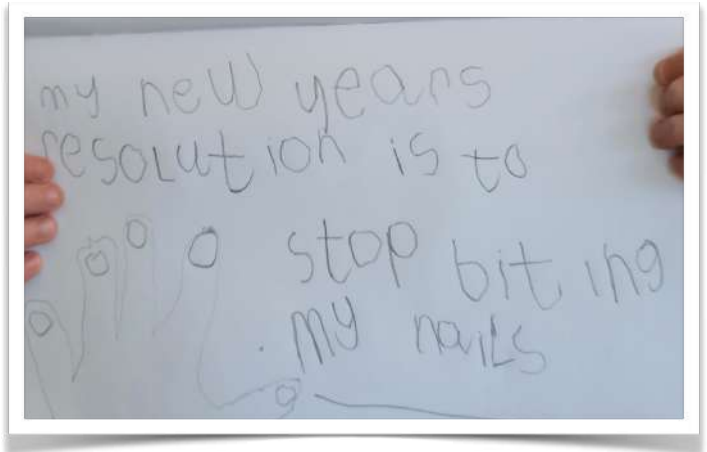 my new years
resolution is to
stop biting
my nails